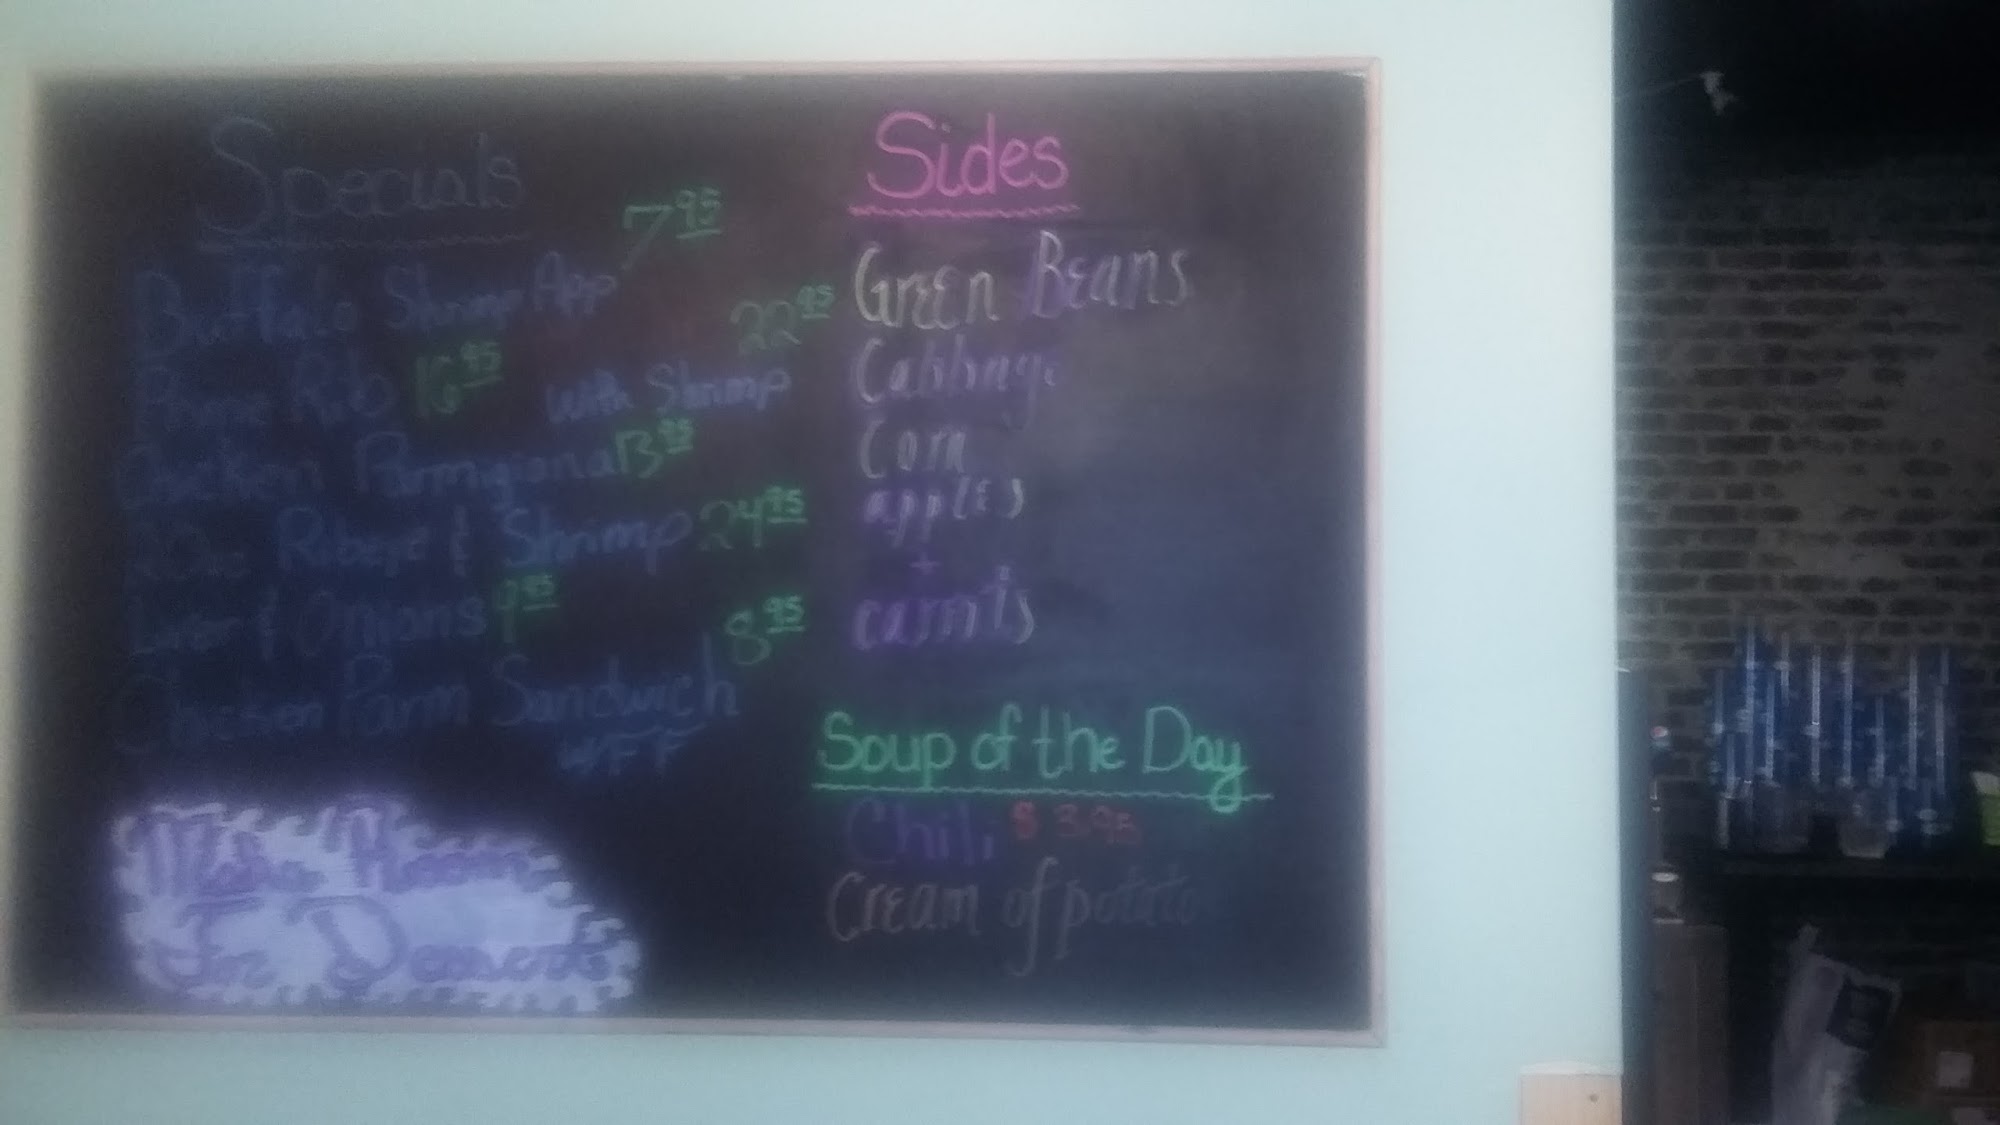 Specials
Buffalo Shrimp App 7 95
Prime Rib 16 95 with Shrimp 22 95
Chicken Parmigiana 13 95
Ribeye & Shrimp 24 95
Liver & Onions 9 95
Chicken Parm Sandwich 8 95
WFF
Make Room
For Desserts
Sides
Green Beans
Cabbage
Corn
apples
+
carrots
Soup of the Day
Chili $3.95
Cream of potato